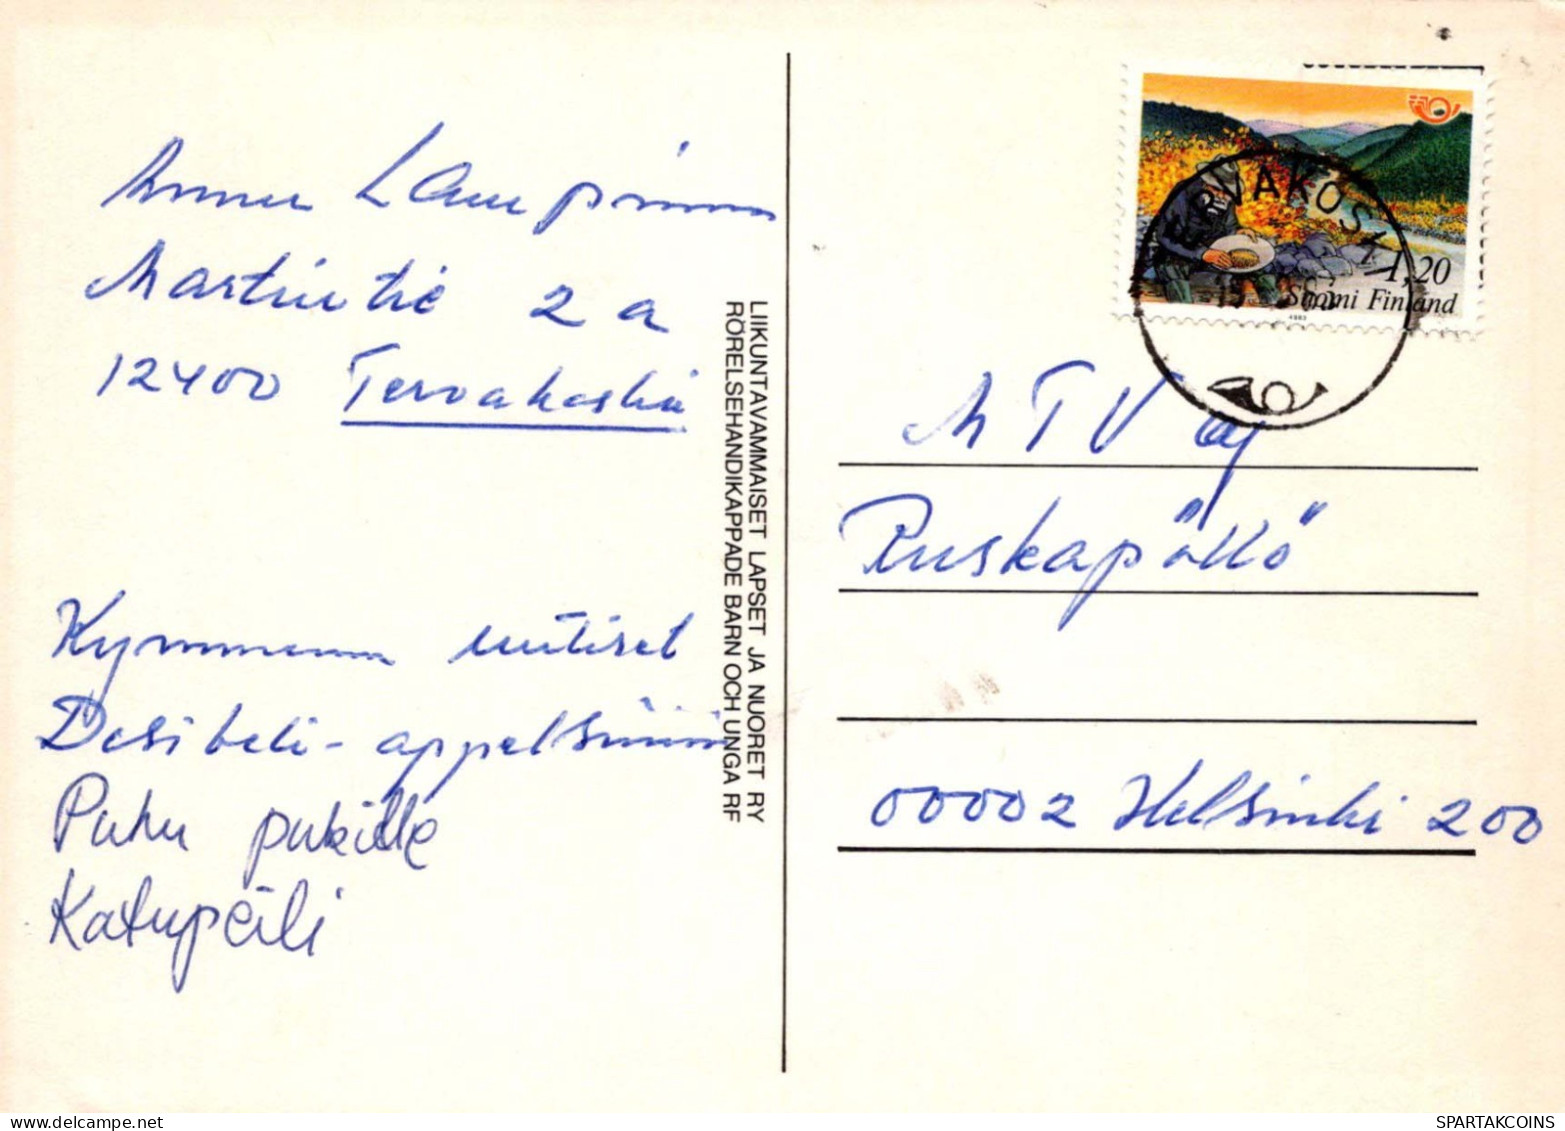 Lampinen
Martintie 2 a
12400 Tervakoski
Kymmenen uutiset
Desibeli - appelsiini
Puhu pukille
Katupeili
LIIKUNTAVAMMAISET LAPSET JA NUORET RY
RÖRELSEHANDIKAPPADE BARN OCH UNGA RF
VAKOSKI
1,20
Suomi Finland
1983
MTV oy
Ruskapöllö
00002 Helsinki 200
hippostcard.com
SPARTAKCOINS